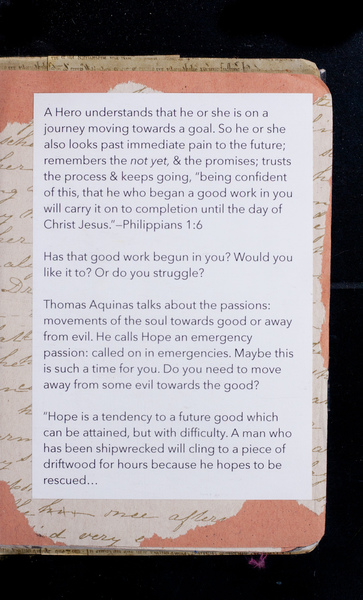 A Hero understands that he or she is on a
journey moving towards a goal. So he or she
also looks past immediate pain to the future;
remembers the not yet, & the promises; trusts
the process & keeps going, "being confident
of this, that he who began a good work in you
will carry it on to completion until the day of
Christ Jesus."–Philippians 1:6
Has that good work begun in you? Would you
like it to? Or do you struggle?
Thomas Aquinas talks about the passions:
movements of the soul towards good or away
from evil. He calls Hope an emergency
passion: called on in emergencies. Maybe this
is such a time for you. Do you need to move
away from some evil towards the good?
"Hope is a tendency to a future good which
can be attained, but with difficulty. A man who
has been shipwrecked will cling to a piece of
driftwood for hours because he hopes to be
rescued…
once after
very